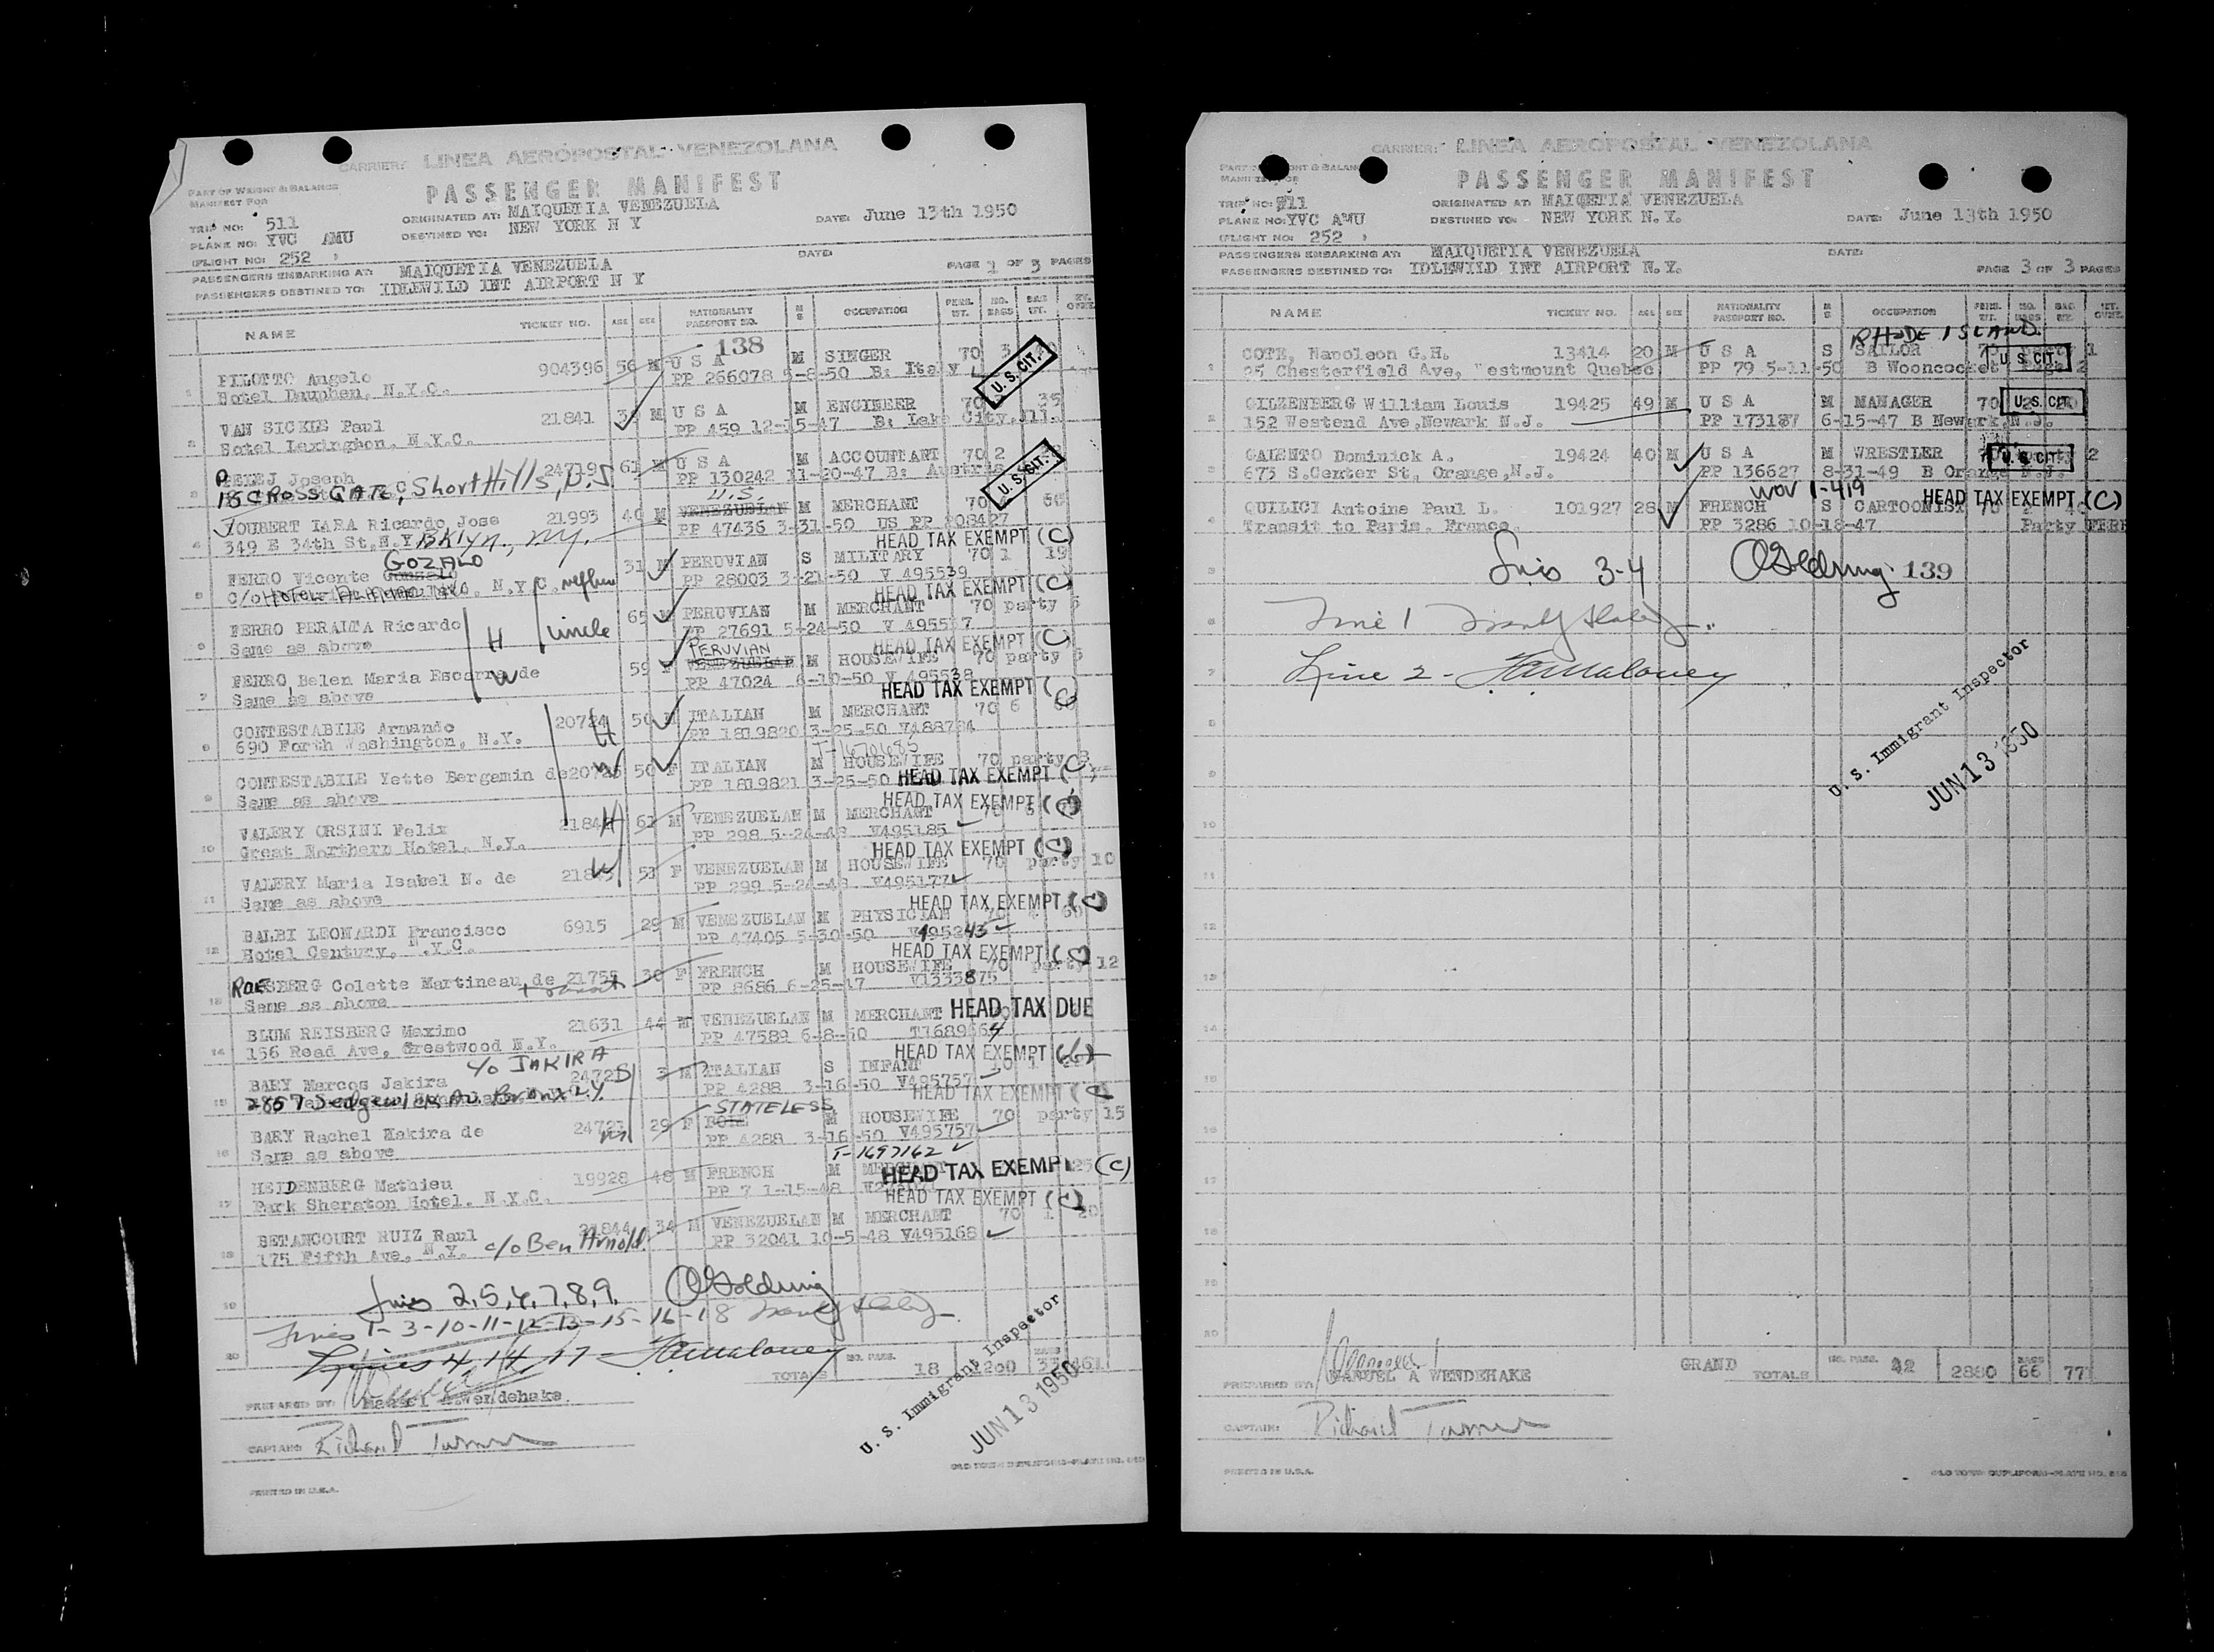 CARRIER: LINEA AEROPOSTAL VENEZOLANA
PART OF WEIGHT & BALANCE
MANIFEST FOR
PASSENGER MANIFEST
TRIP NO: 511
ORIGINATED AT: MAIQUETIA VENEZUELA
DATE: June 13th 1950
PLANE NO: YVC AMU
DESTINED TO: NEW YORK N Y
(FLIGHT NO: 252 )
PASSENGERS EMBARKING AT: MAIQUETIA VENEZUELA
DATE:
PASSENGERS DESTINED TO: IDLEWILD INT AIRPORT N Y
PAGE 1 OF 3 PAGES
NAME TICKET NO. AGE SEX NATIONALITY PASSPORT NO. M S OCCUPATION PERS. WT. NO. BAGS BAG WT.
138
1 PILOTTO Angelo 904396 56 M U S A M SINGER 70 3
Hotel Dauphen, N.Y.C. PP 266078 5-8-50 B: Italy U.S. CIT.
2 VAN SICKLE Paul 21841 M U S A M ENGINEER 70 35
Hotel Lexington, N.Y.C. PP 459 12-15-47 B: Lake City, Ill.
3 PELEJ Joseph 24719 61 M U S A M ACCOUNTANT 70 2
18 CROSS GATE, Short Hills, N.J. PP 130242 11-20-47 B: Austria U.S. CIT.
U.S.
4 JOUBERT IARA Ricardo Jose 21993 40 M VENEZUELAN M MERCHANT 70
349 E 34th St, N.Y. BKlyn., N.Y. PP 47436 3-31-50 US PP 208427
HEAD TAX EXEMPT (C)
GOZALO
5 FERRO Vicente 31 M PERUVIAN S MILITARY 70 1 19
c/o N.Y.C. nephew PP 28003 3-21-50 V 495539
HEAD TAX EXEMPT (C)
6 FERRO PERALTA Ricardo H uncle 65 M PERUVIAN M MERCHANT 70 party 5
Same as above PP 27691 5-24-50 V 495537
HEAD TAX EXEMPT (C)
PERUVIAN
7 FERRO, Belen Maria Escarra de W 59 F VENEZUELAN M HOUSEWIFE 70 party 5
Same as above PP 47024 6-10-50 V 495538
HEAD TAX EXEMPT (C)
8 CONTESTABILE Armando 20724 H 50 M ITALIAN M MERCHANT 70 6
690 Forth Washington, N.Y. PP 1819820 3-25-50 V488784
T-1670685
9 CONTESTABILE Yette Bergamin de 20725 W 50 F ITALIAN M HOUSEWIFE 70 party 8
Same as above PP 1819821 3-25-50 HEAD TAX EXEMPT (C)
HEAD TAX EXEMPT (C)
10 VALERY ORSINI Felix H 61 M VENEZUELAN M MERCHANT 70
Great Northern Hotel, N.Y. PP 298 5-24-48 V495185
HEAD TAX EXEMPT (C)
11 VALERY Maria Isabel N. de W 53 F VENEZUELAN M HOUSEWIFE 70 party 10
Same as above PP 299 5-24-48 V495177
HEAD TAX EXEMPT (C)
12 BALBI LEONARDI Francisco 6915 29 M VENEZUELAN M PHYSICIAN 70
Hotel Century, N.Y.C. PP 47405 5-30-50 V495245
HEAD TAX EXEMPT (C)
13 ROESBERG Colette Martineau de 21755 30 F FRENCH M HOUSEWIFE 70 party 12
Same as above PP 8686 6-25-47 V1333875
14 BLUM REISBERG Maximo 21631 44 M VENEZUELAN M MERCHANT HEAD TAX DUE
156 Read Ave, Crestwood N.Y. PP 47589 6-8-50 T1689664
c/o JAKIRA HEAD TAX EXEMPT
15 BARY Marcos Jakira 3 M ITALIAN S INFANT
2857 Sedgewick Av. Bronx N.Y. PP 4288 3-16-50 V495757
HEAD TAX EXEMPT (C)
STATELESS
16 BARY Rachel Hakira de 29 F M HOUSEWIFE 70 party 15
Same as above PP 4288 3-16-50 V495757
T-1697162
17 HEIDENBERG Mathieu 19928 48 M FRENCH M HEAD TAX EXEMPT (C)
Park Sheraton Hotel. N.Y.C. PP 7 1-15-48
HEAD TAX EXEMPT (C)
18 BETANCOURT RUIZ Raul 21844 34 M VENEZUELAN M MERCHANT 70 1 20
175 Fifth Ave, N.Y. c/o Ben Arnold. PP 32041 10-5-48 V495168
19 Lines 2, 5, 6, 7, 8, 9. O Goldring
Lines 1-3-10-11-12-13-15-16-18
20 Lines 4, 14, 17 - Maloney
TOTALS NO. PASS. 18
PREPARED BY: Manuel A Wendehake.
CAPTAIN: Richard Turner
U. S. Immigrant Inspector
JUN 13 1950
PRINTED IN U.S.A.
CARRIER: LINEA AEROPOSTAL VENEZOLANA
PASSENGER MANIFEST
TRIP NO: 511
ORIGINATED AT: MAIQETIA VENEZUELA
PLANE NO: YVC AMU
DESTINED TO: NEW YORK N.Y.
DATE: June 13th 1950
(FLIGHT NO: 252 )
PASSENGERS EMBARKING AT: MAIQUETIA VENEZUELA
DATE:
PASSENGERS DESTINED TO: IDLEWILD INT AIRPORT N.Y.
PAGE 3 OF 3 PAGES
NAME TICKET NO. AGE SEX NATIONALITY PASSPORT NO. M S OCCUPATION
RHODE ISLAND
1 COTE, Napoleon G.H. 13414 20 M U S A S SAILOR U.S. CIT. 1
25 Chesterfield Ave, Westmount Quebec PP 79 5-11-50 B Wooncocket
2 GILZENBERG William Louis 19425 49 M U S A M MANAGER 70 U.S. CIT.
152 Westend Ave, Newark N.J. PP 173187 6-15-47 B Newark, N.J.
3 GALENTO Dominick A. 19424 40 M U S A M WRESTLER U.S. CIT. 2
673 S.Center St, Orange, N.J. PP 136627 8-31-49 B Orange N.J.
WOV 1-419 HEAD TAX EXEMPT (C)
4 QUILICI Antoine Paul L. 101927 28 M FRENCH S CARTOONIST 70
Transit to Paris, France. PP 3286 10-18-47 Party
5 Lines 3-4 O Goldring 139
6 Line 1
7 Line 2 - Maloney
8
9
10
11
12
13
14
15
16
17
18
19
20
U. S. Immigrant Inspector
JUN 13 1950
GRAND TOTALS NO. PASS. 42 2880 BAGS 66 77
PREPARED BY: MANUEL A WENDEHAKE
CAPTAIN: Richard Turner
PRINTED IN U.S.A.